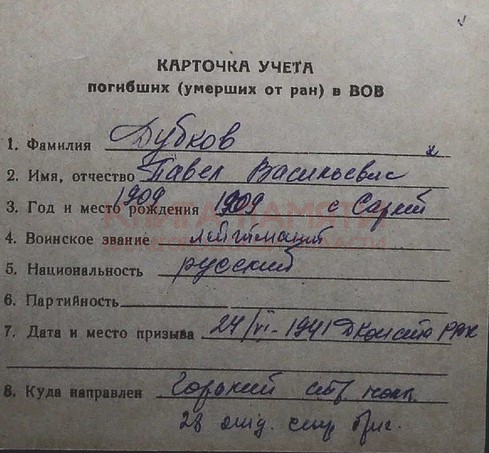 КАРТОЧКА УЧЕТА
погибших (умерших от ран) в ВОВ
1. Фамилия Дубков
2. Имя, отчество Павел Васильевич
3. Год и место рождения 1909 1909 с Саркей
4. Воинское звание
5. Национальность русский
6. Партийность
7. Дата и место призыва 24/VI-1941 РВК
8. Куда направлен Горький стр.
28 стр